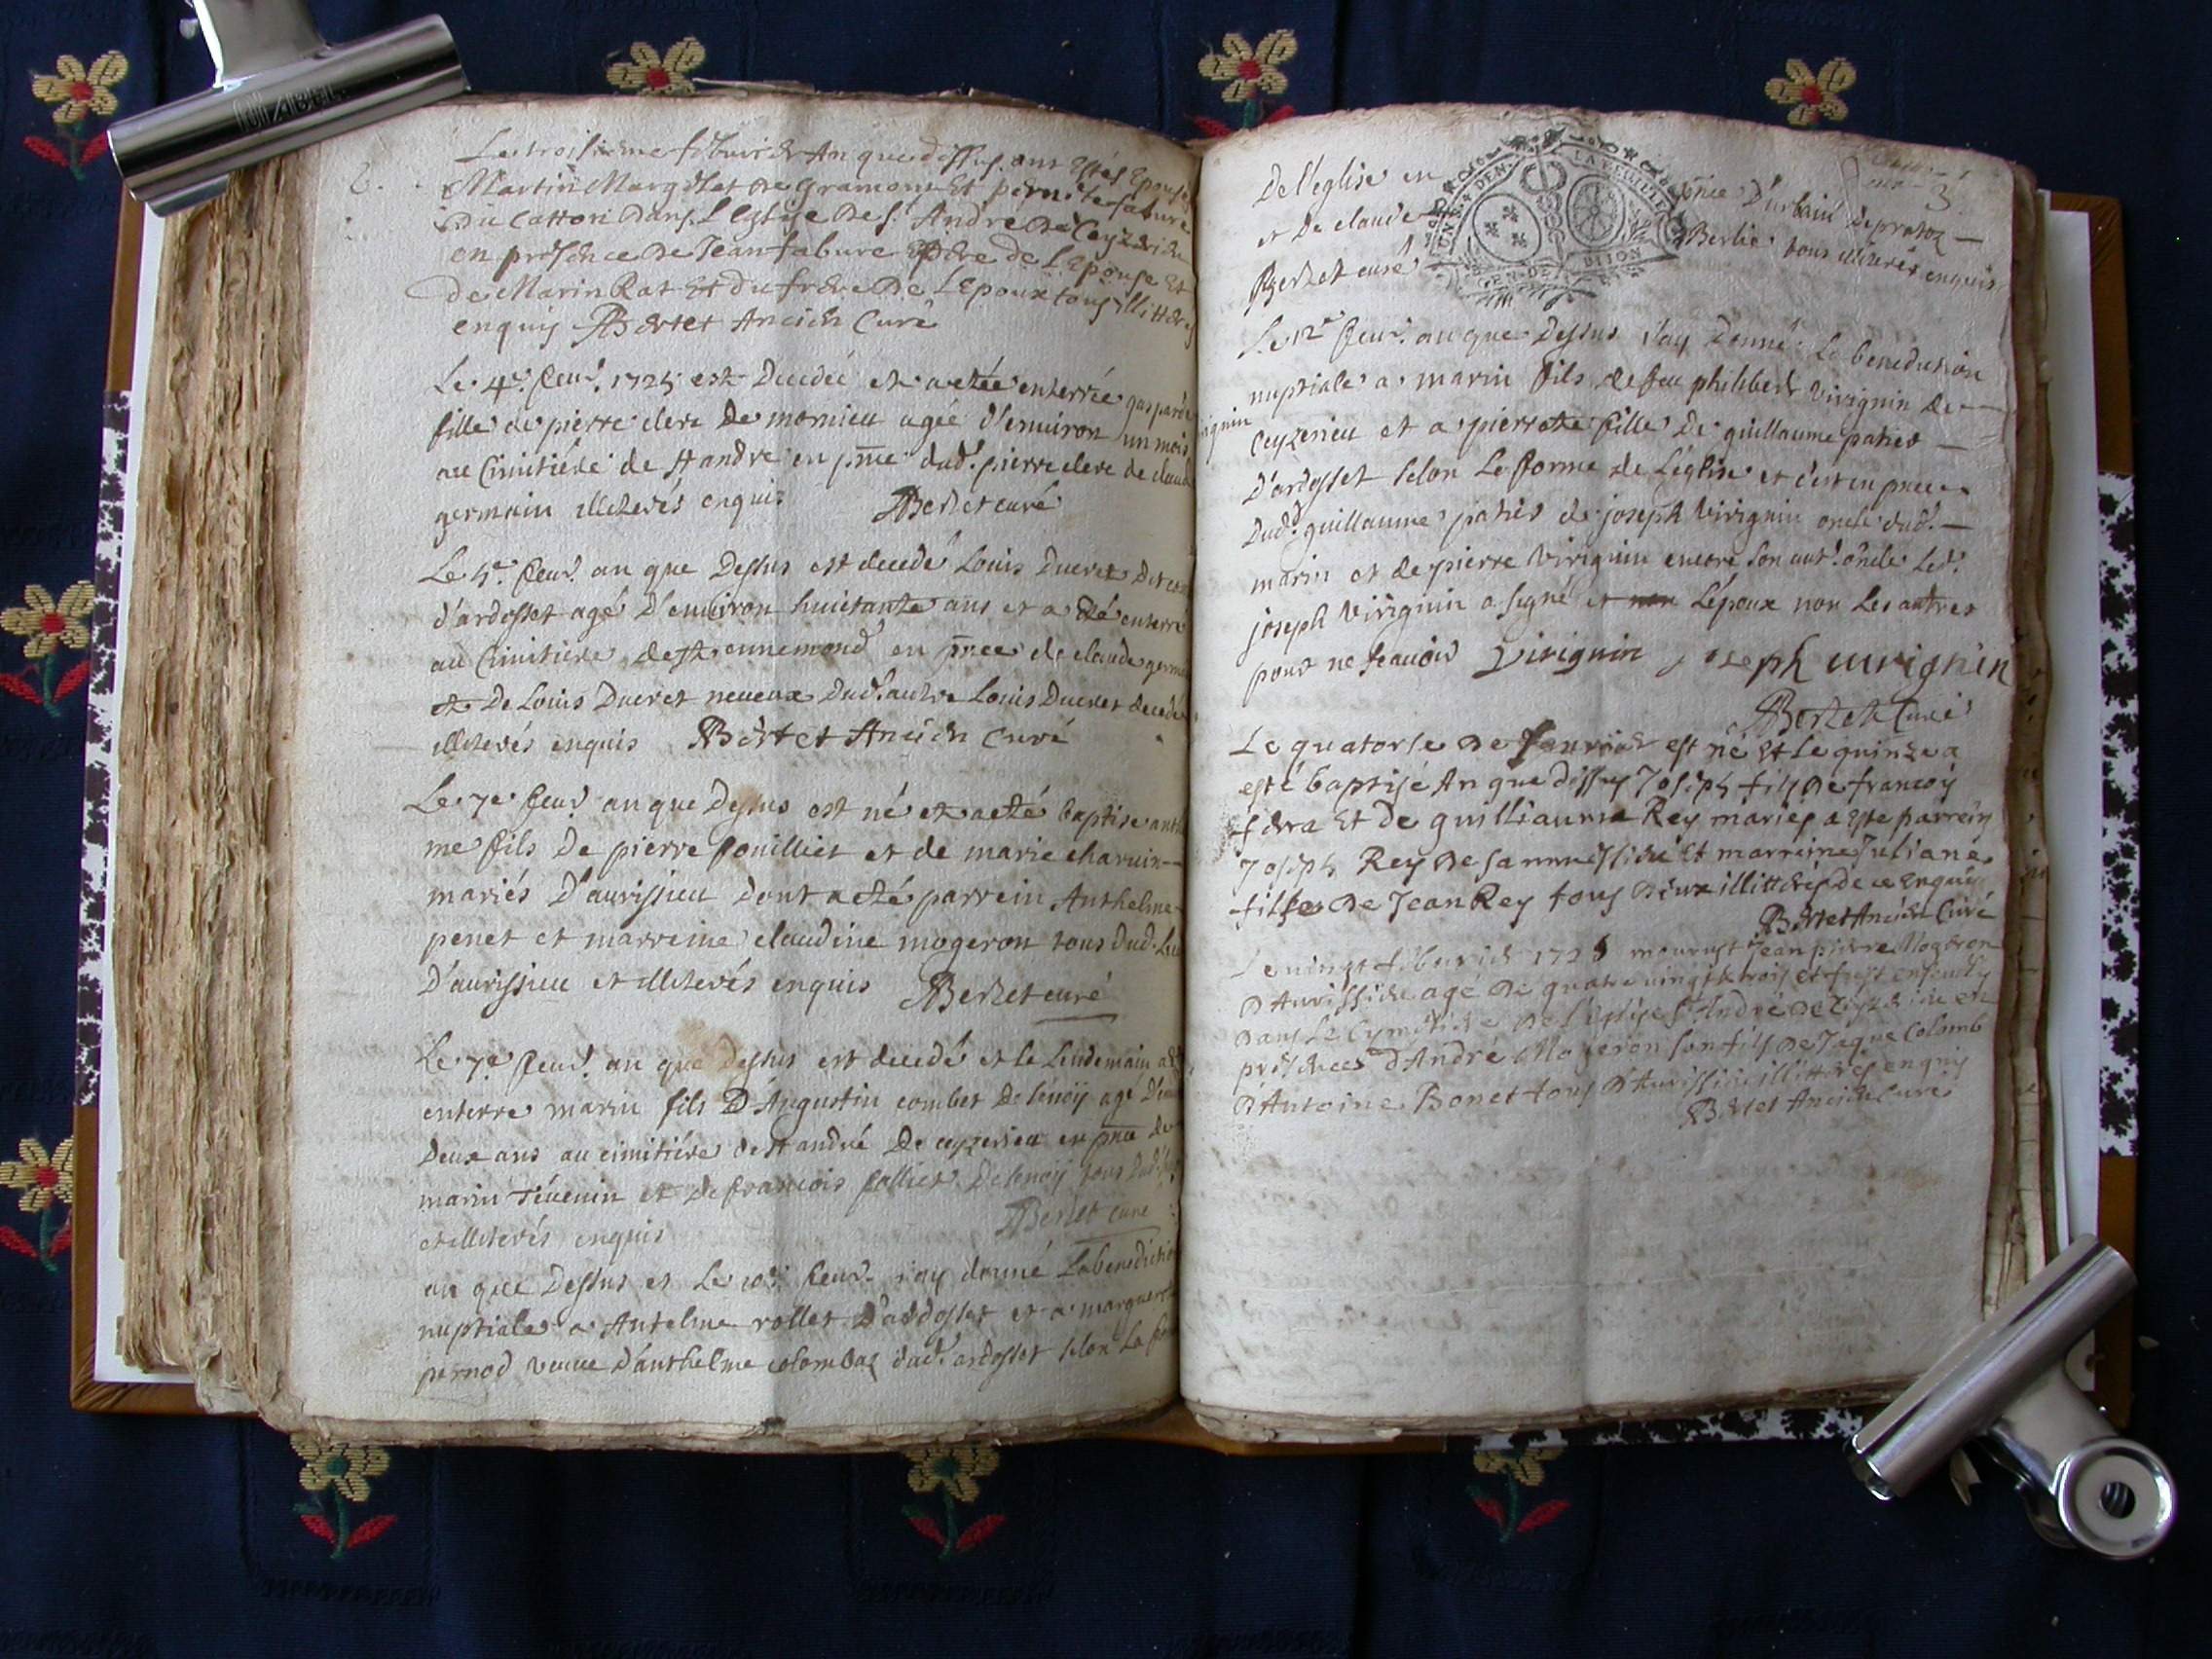 Le troisieme feburier An que dessus ont Estés Epousés
Martin Margollet de Gramont Et pernete fabure
Du Catton dans L'Eglise de St André de Ceyzerieu
en présence de Jean fabure Père de L'Epouse Et
de Marin Rat Et du frere De L'Epoux tous illitterés
enquis Bertet Ancien Curé
Le 4e. feur. 1725 est Decedée et a etée enterrée gasparde
fille de pierre clerc de mornieu agée d'enuiron un mois
au Cimitiére de st andre en pnce dud. pierre clerc de claude
germain illiterés enquis Bertet curé
Le 5e. feur. an que Dessus est decedé Louis Ducret Dit
d'ardosset agé D'enuiron huictante ans et a été enterré
au Cimitiere de st ennemond en pnce de claude germ
et De Louis Ducret neueux Dud. autre Louis Ducret decedé
illiterés enquis Bertet Ancien Curé
Le 7e feur an que Dessus est né et a eté baptise anth
me fils De pierre pouilliet et de marie charuin
mariés D'aurissieu dont a eté parrein Anthelme
penet et marreine claudine mogeron tous Dud. Lieu
D'aurissieu et illiterés enquis Bertet curé
Le 7e feur. an que Dessus est decedé et le Lendemain a
enterre marin fils D'Augustin combet De lénoÿ agé D'en
Deux ans au cimitiére de st andré De ceyzerieu en pnce de
marin Téuenin et de francois follict De lenoÿ tous Dud.
et illiterés enquis Bertet curé
an que Dessus et Le 10e. feur. j'ay donné La benediction
nuptiale a Antelme rollet D'ardosset et a marguer
pernod veuue D'anthelme colombaz dud. ardosset selon La for
3
De l'eglise en pnce D'urbain depratoz
et De claude Berlie tous illiterés enquis
Bertet curé
UNE DEN. LA FEUILLE
GEN. DE DIJON
Le 12e feur. an que Dessus j'ay Donné La benediction
nuptiale a marin fils de feu philibert virignin de
ceyzerieu et a pierrete fille De guillaume patiet
D'ardosset selon Le forme de L'église et c'est en pnce
Dud. guillaume patiet de joseph Virignin oncle dud.
marin et de pierre Virignin encore son aut. oncle Led.
joseph Virignin a signé et non L'époux non Les autres
pour ne scauoir Virignin joseph uirignin
Bertet Curé
Le quatorse de feurier est né Et Le quinze a
esté baptisé An que dessus Joseph fils de francoy
ferra Et de guilliauma Rey mariés a Este parrein
Joseph Rey de Et marreine Juliane
fille de Jean Rey tous deux illitterés de ce Enquis
Bertet Ancien Curé
Le uingt feburier 1725 mourust Jean pierre Mogeron
D'Aurissieu agé de quatre uingt trois et fust enseuely
dans Le Cymetiere de L'Eglise St André de Ceyzerieu en
présences d'André Mogeron son fils de Jaque Colomb
d'Antoine Bonet tous D'Aurissieu illitterés enquis
Bertet Ancien Curé